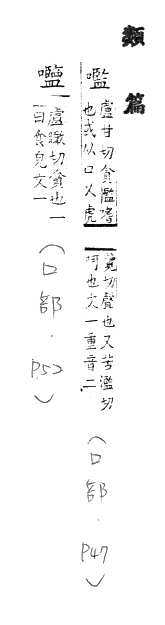 類
篇
嚂
盧甘切貪濫嗜
也或从口从虎
莧切聲也又苦濫切
呵也文一重音二
(口部.P47)
盧瞰切貪也一
曰食皃文一
(口部.P52)